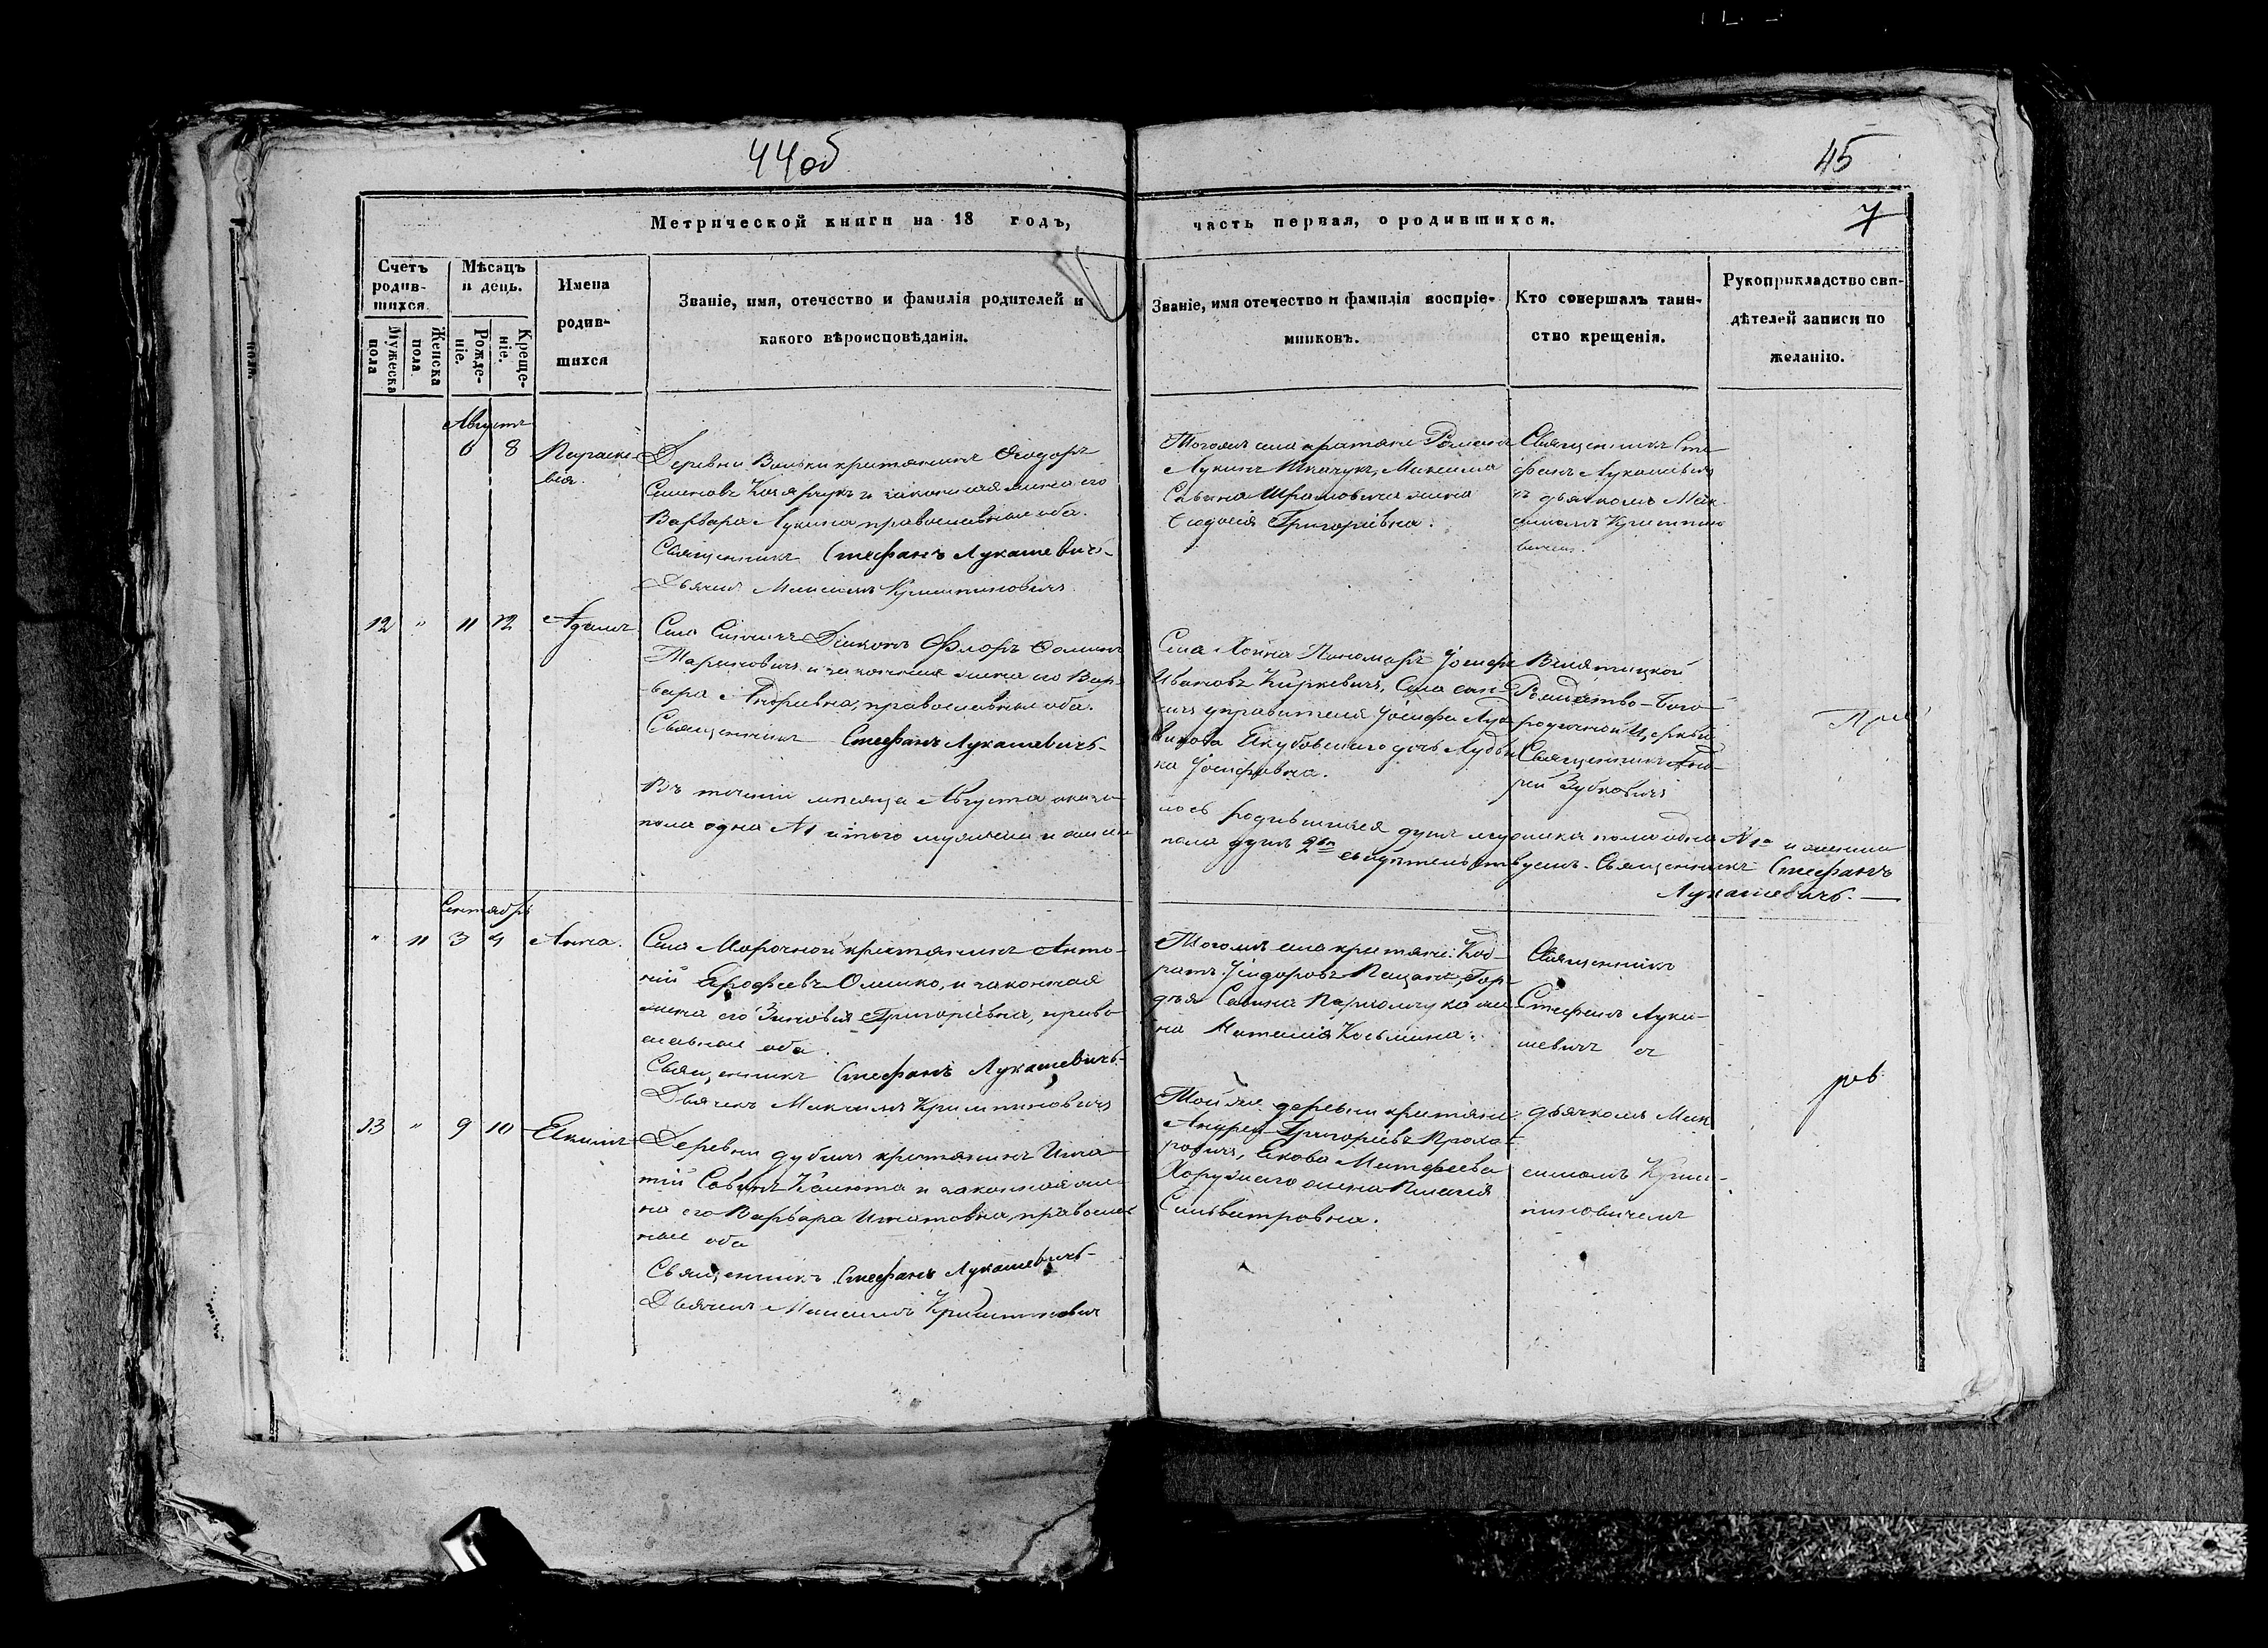 44об
45
Метрической книги на 18 годъ,
часть первая, о родившихся.
7
Счетъ родив-шихся.
Мужеска пола
Женска пола.
Мѣсацъ и день.
Рожде-ніе.
Креще-ніе.
Имена родив-шихся
Званіе, имя, отечество и фамилія родителей и
какого вѣроисповѣданія.
Званіе, имя отечество и фамилія воспріе-
мниковъ.
Кто совершалъ таин-
ство крещенія.
Рукоприкладство сви-
дѣтелей записи по
желанію.
Августъ
6 8 Параске-
вія.
Деревни Вольки крестьянинъ Ѳеодоръ
Семеновъ и законная жена его
Варвара Лукина православные оба.
Священникъ Стефанъ Лукашевичъ
Дьячекъ Максимъ Криштиновичъ
Тогожъ села крестьяне Романъ
Лукинъ Ткачукъ, Максима
Савина жена
Ѳеодосія Григоріевна.
Священникъ Сте-
фанъ Лукашевичъ
съ дьячкомъ Мак-
симомъ Криштино-
вичемъ.
12 " 11 12 Адамъ
Села Діаконъ Флоръ Ѳоминъ
и законная жена его Вар-
вара Андреевна, православные оба.
Священникъ Стефанъ Лукашевичъ
Села Хойна Пономарь Іосифъ
Ивановъ Киркевичъ, Села
управителя Іосифа
Якубовскаго дочь
Іосифовна.
Рождество-Бого-
родичной Церкви
Священникъ Анд-
рей Зубковичъ
Въ теченіи мѣсяца Августа оказа-
лось родившихся душъ мужеска пола одна №1а и женска
пола одна №1 итого мужеска и женска
пола душъ 2вѣ свидѣтельствуемъ. Священникъ Стефанъ
Лукашевичъ.
Сентябрь
" 11 3 4 Анна.
Села Морочной крестьянинъ Анто-
ній Ерофеевъ Омелко, и законная
жена его Зиновія Григоріевна, право-
славные оба.
Священникъ Стефанъ Лукашевичъ
Дьячекъ Максимъ Криштиновичъ
Тогожъ села крестьяне: Код-
ратъ Ісидоровъ Гор-
дѣя Савина же-
на Наталія Косьмина.
Священникъ
Стефанъ Лука-
шевичъ съ
дьячкомъ Мак
симомъ Криш-
тиновичемъ
13 " 9 10 Екимъ
Деревни крестьянинъ Игна-
тій Савинъ и законная же-
на его Варвара Игнатовна, православ
ные оба
Священникъ Стефанъ Лукашевичъ
Дьячекъ Максимъ Криштиновичъ
Той же деревни крестьяне
Андрей Григоріевъ Прохо-
ровичъ, Якова Матфеева
Хоружаго жена Пелагія
Сильвестровна.